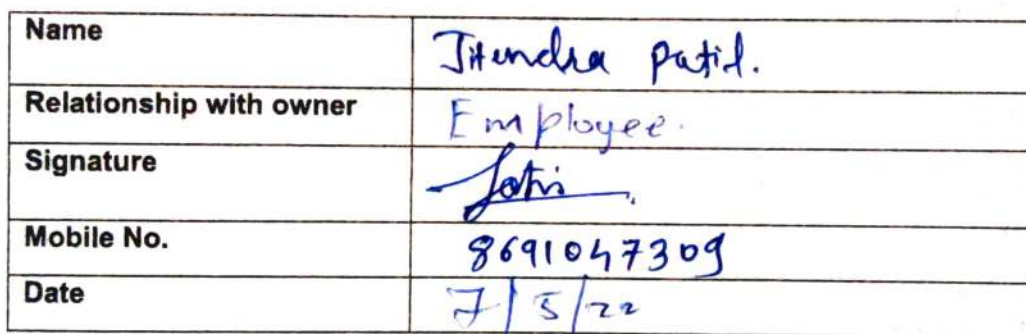 Name Jitendra Patil.
Relationship with owner Employee.
Signature
Mobile No. 8691047309
Date 7/5/22